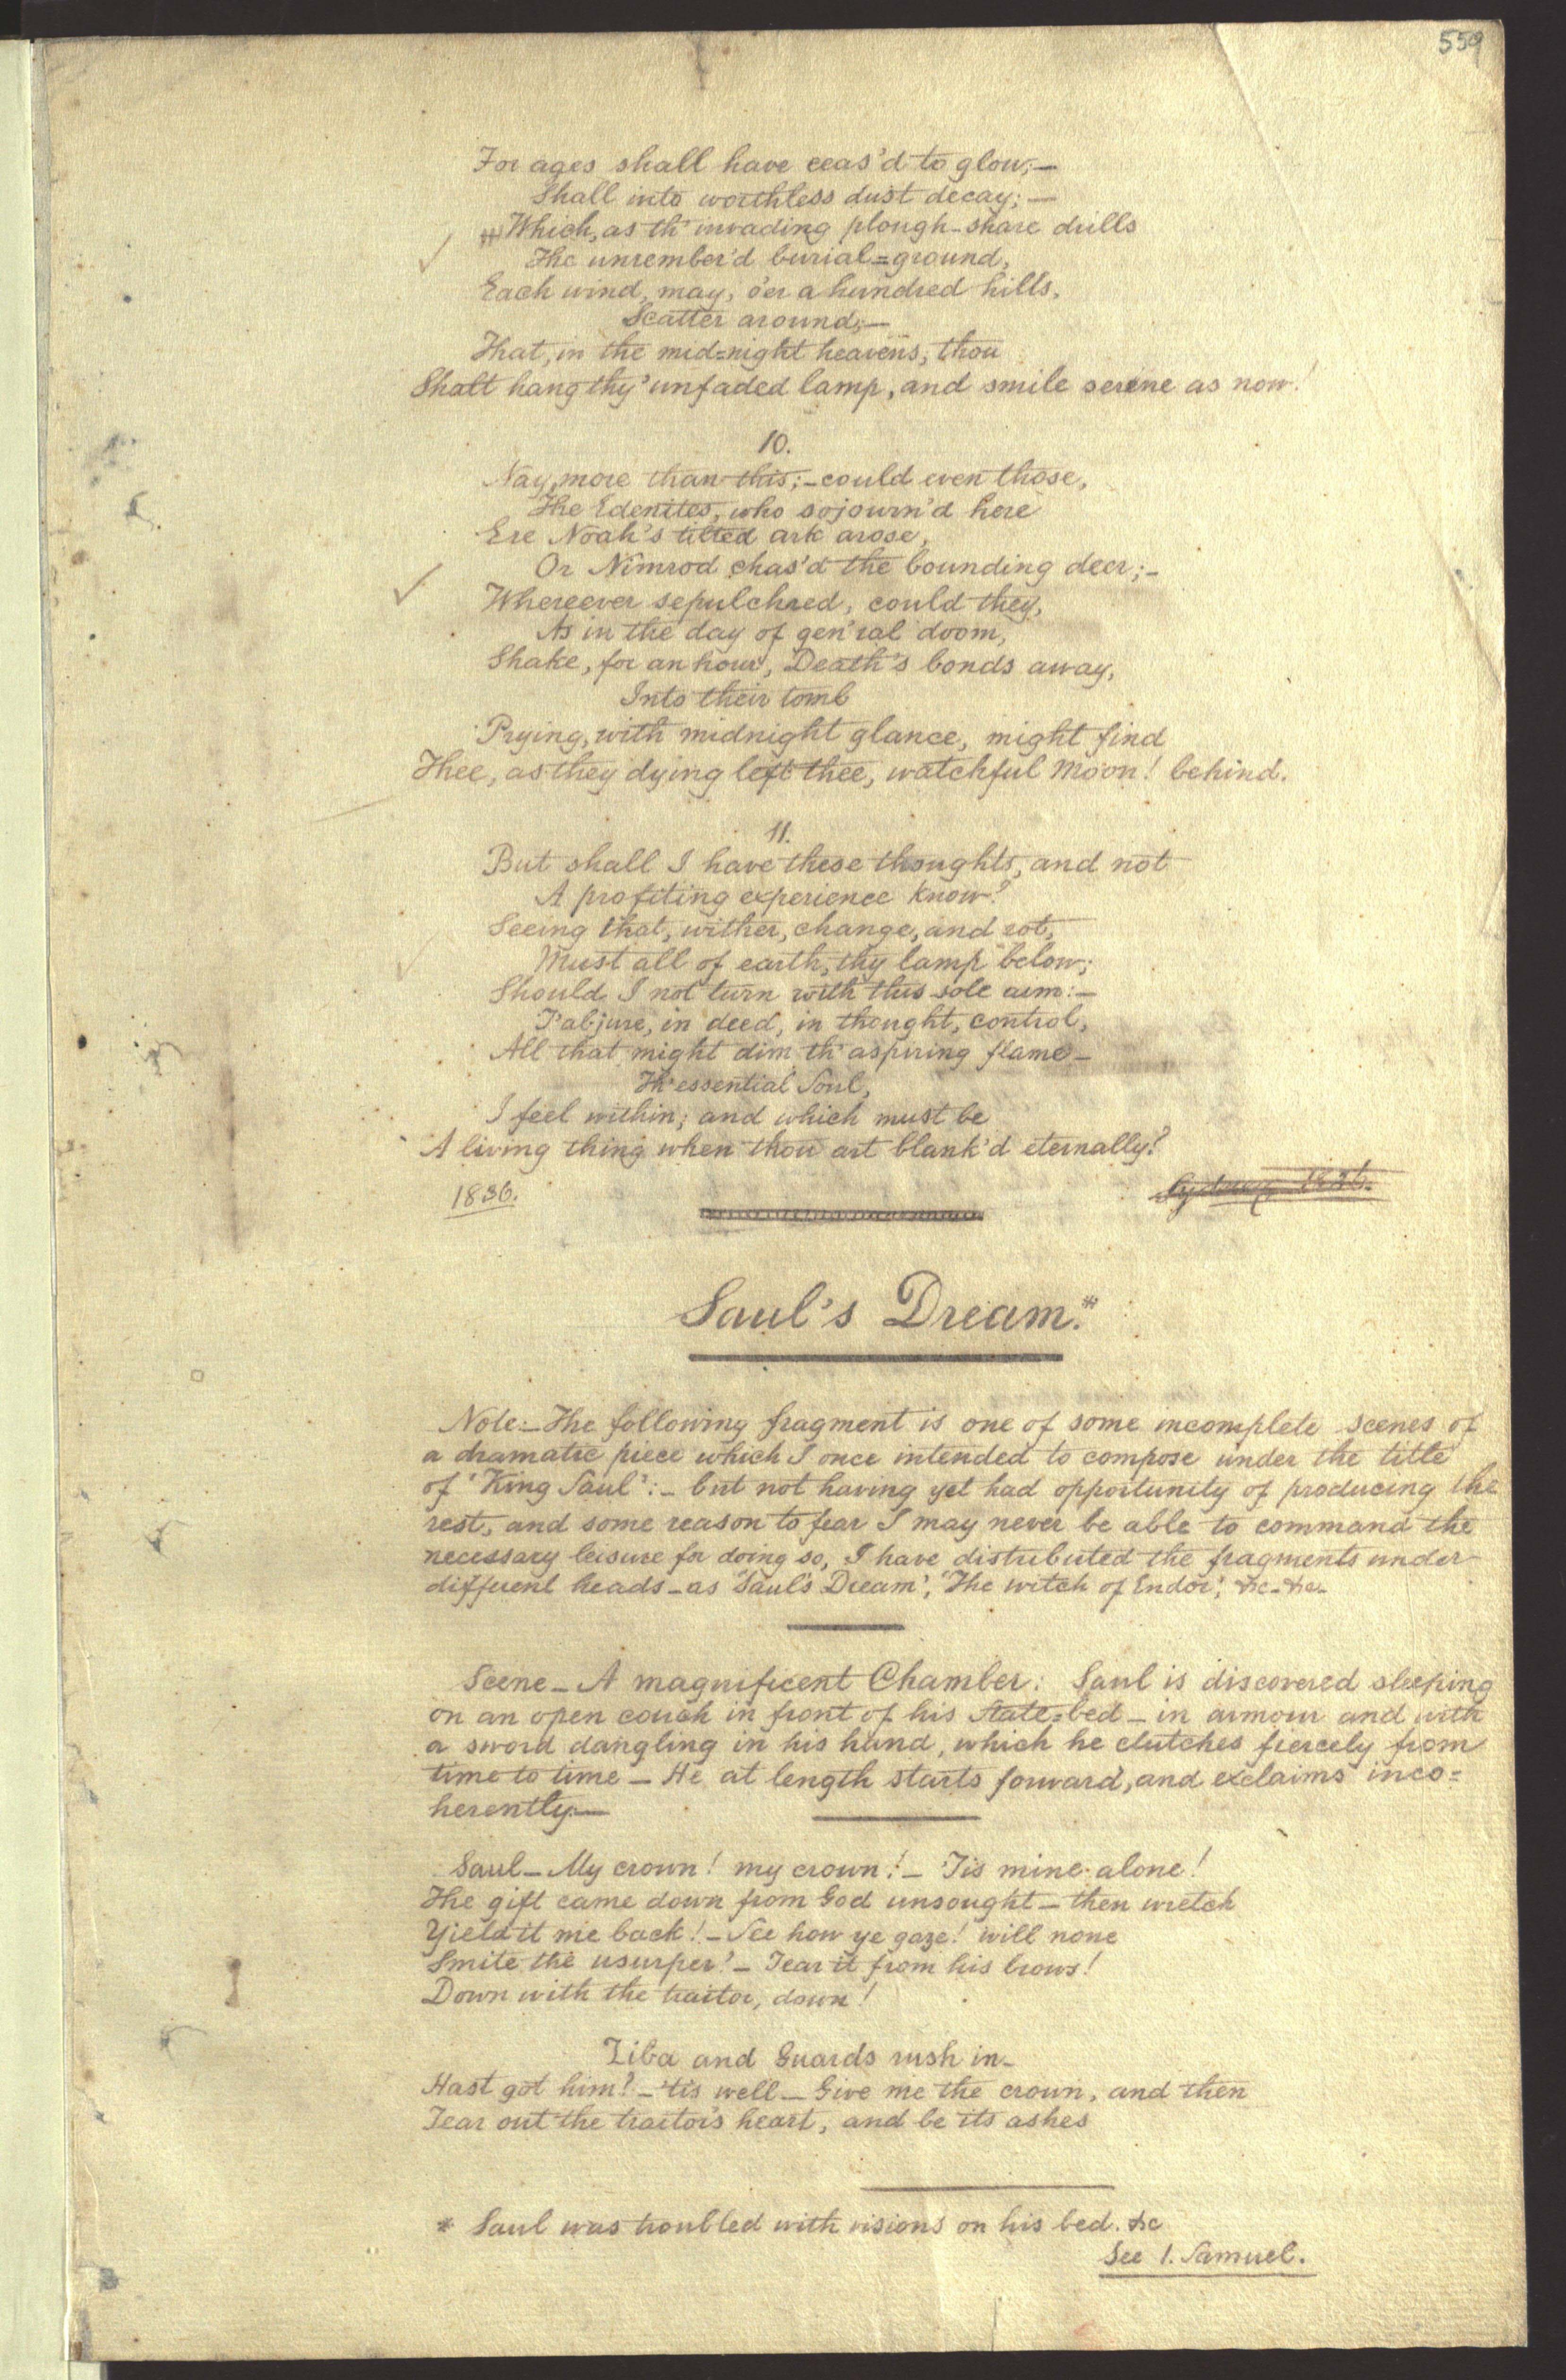 559
For ages shall have ceas'd to glow;—
Shall into worthless dust decay;—
Which, as th' invading plough-share drills
The unrember'd burial=ground,
Each wind, may, o'er a hundred hills,
Scatter around;—
That, in the mid=night heavens, thou
Shalt hang thy unfaded lamp, and smile serene as now!
10.
Nay, more than this;—could even those,
The Edenites, who sojourn'd here
Ere Noah's tilted ark arose,
Or Nimrod chas'd the bounding deer;—
Whereever sepulchred, could they,
As in the day of gen'ral doom,
Shake, for an hour, Death's bonds away,
Into their tomb
Prying, with midnight glance, might find
Thee, as they dying left thee, watchful Moon! behind.
11.
But shall I have these thoughts, and not
A profiting experience know?
Seeing that, wither, change, and rot,
Must all of earth, thy lamp below;
Should I not turn with this sole aim:—
T'abjure, in deed, in thought, control,
All that might dim th' aspiring flame—
Th' essential Soul,
I feel within; and which must be
A living thing when thou art blank'd eternally?
1836.
Sydney 1836.
Saul's Dream.*
Note:—The following fragment is one of some incomplete scenes of
a dramatic piece which I once intended to compose under the title
of 'King Saul':— but not having yet had opportunity of producing the
rest, and some reason to fear I may never be able to command the
necessary leisure for doing so, I have distributed the fragments under
different heads—as 'Saul's Dream', 'The witch of Endor', &c—&c—
Scene—A magnificent Chamber: Saul is discovered sleeping
on an open couch in front of his state=bed—in armour and with
a sword dangling in his hand, which he clutches fiercely from
time to time—He at length starts forward, and exclaims inco=
herently:—
Saul—My crown! my crown!—'Tis mine alone!
The gift came down from God unsought—then wretch
Yield it me back!—See how ye gaze! will none
Smite the usurper?—Tear it from his brows!
Down with the traitor, down!
Ziba and Guards rush in—
Hast got him?—'tis well—Give me the crown, and then
Tear out the traitor's heart, and be its ashes
* Saul was troubled with visions on his bed. &c
See 1. Samuel.